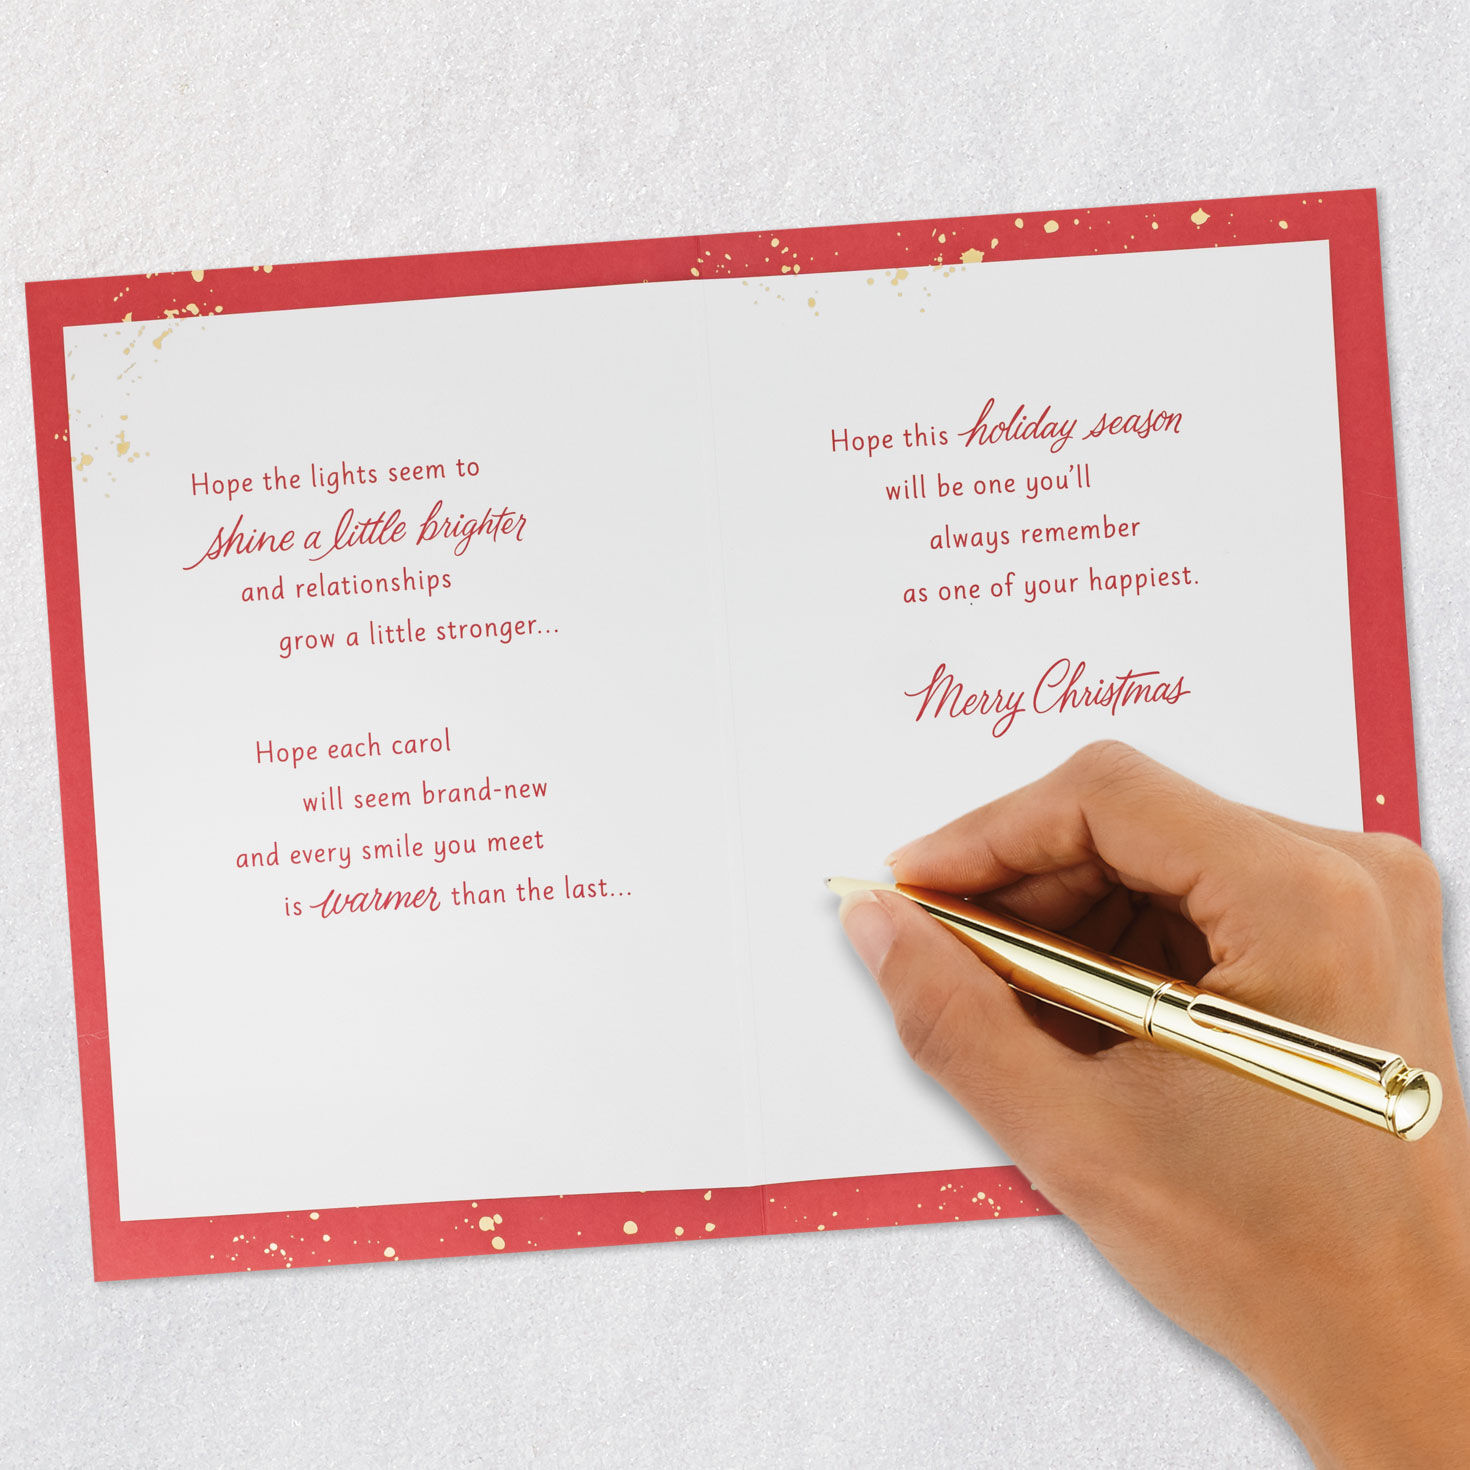 Hope the lights seem to
shine a little brighter
and relationships
grow a little stronger...
Hope each carol
will seem brand-new
and every smile you meet
is warmer than the last...
Hope this holiday season
will be one you'll
always remember
as one of your happiest.
Merry Christmas